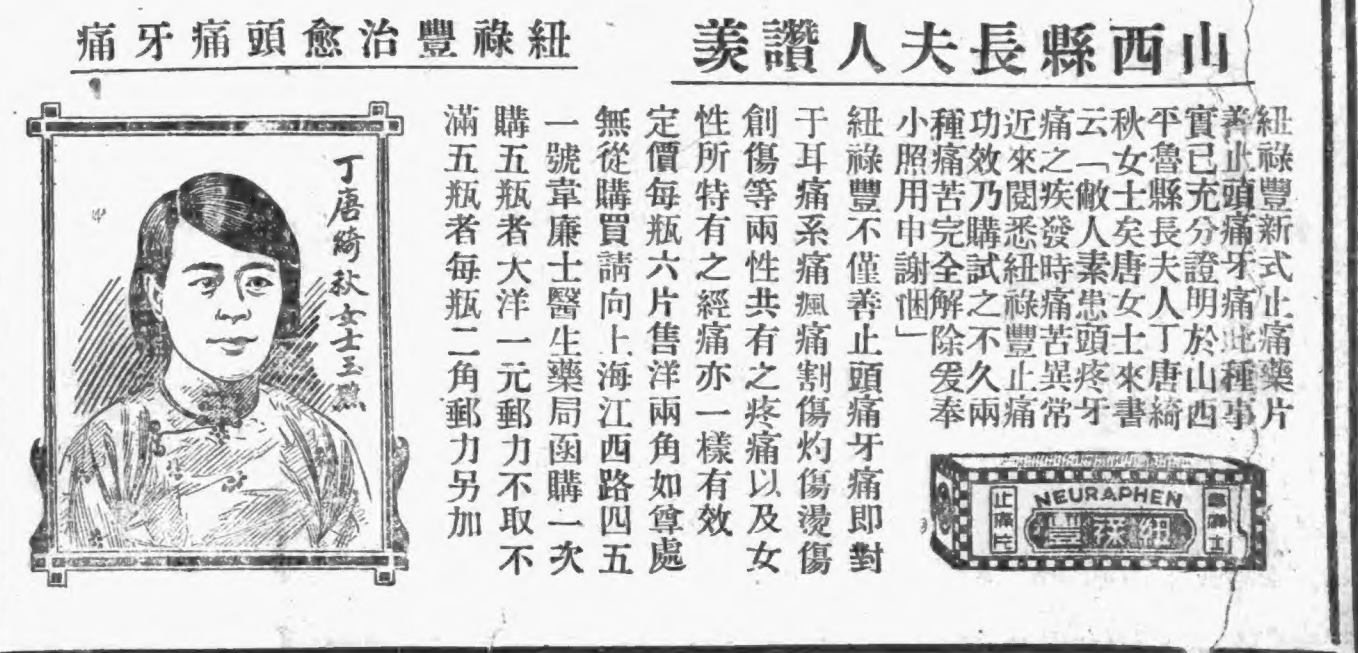 山西縣長夫人讚羨
紐祿豐治愈頭痛牙痛
紐祿豐新式止痛藥片
善止頭痛牙痛此種事
實已充分證明於山西
平魯縣長夫人丁唐綺
秋女士矣唐女士來書
云「敝人素患頭疼牙
痛之疾發時痛苦異常
近來閱悉紐祿豐止痛
功效乃購試之不久兩
種痛苦完全解除爰奉
小照用申謝悃」
紐祿豐不僅善止頭痛牙痛即對
于耳痛系痛瘋痛割傷灼傷燙傷
創傷等兩性共有之疼痛以及女
性所特有之經痛亦一樣有效
定價每瓶六片售洋兩角如尊處
無從購買請向上海江西路四五
一號韋廉士醫生藥局函購一次
購五瓶者大洋一元郵力不取不
滿五瓶者每瓶二角郵力另加
丁唐綺秋女士玉照
韋廉士
NEURAPHEN
紐祿豐
止痛片